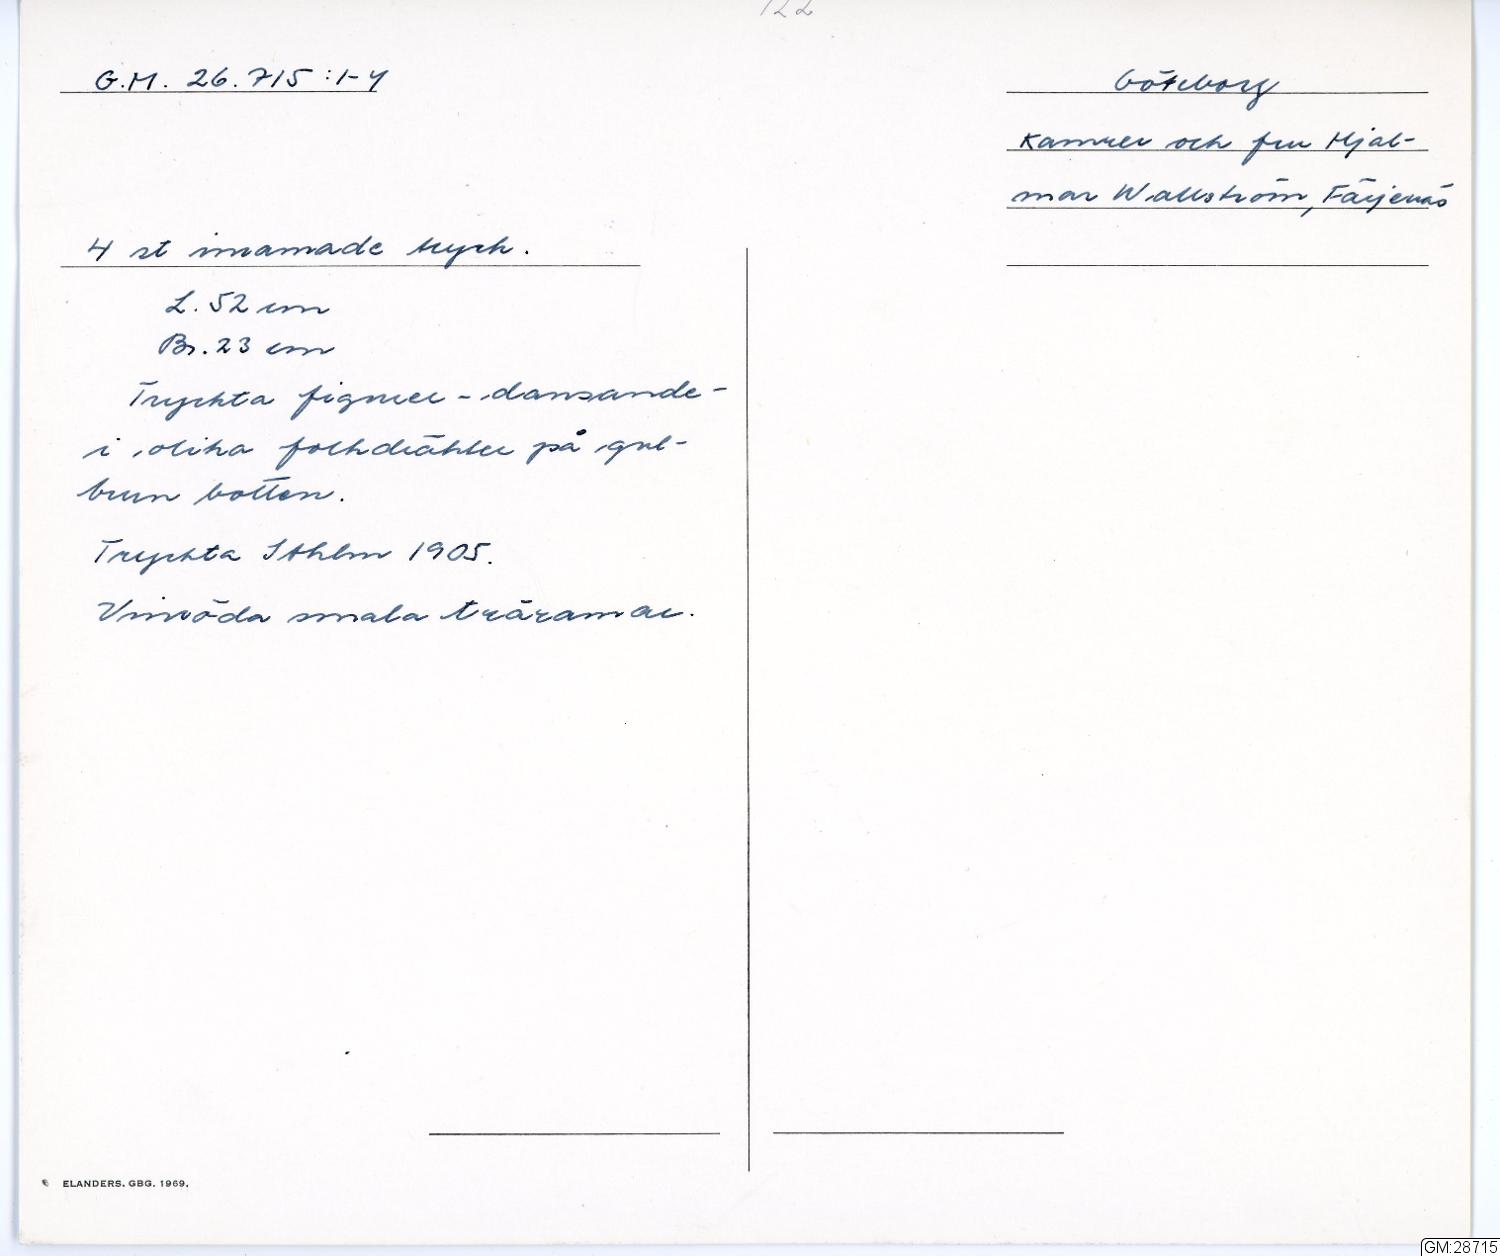 122
G.M. 26.715:1-4
Göteborg
Kamrer och fru Hjal-
mar Wallström, Färjenäs
4 st inramade tryck.
L. 52 cm
Br. 23 cm
Tryckta figurer - dansande -
i olika folkdräkter på gul-
brun botten.
Tryckta Sthlm 1905.
Vinröda smala träramar.
ELANDERS. GBG. 1969.
GM:28715